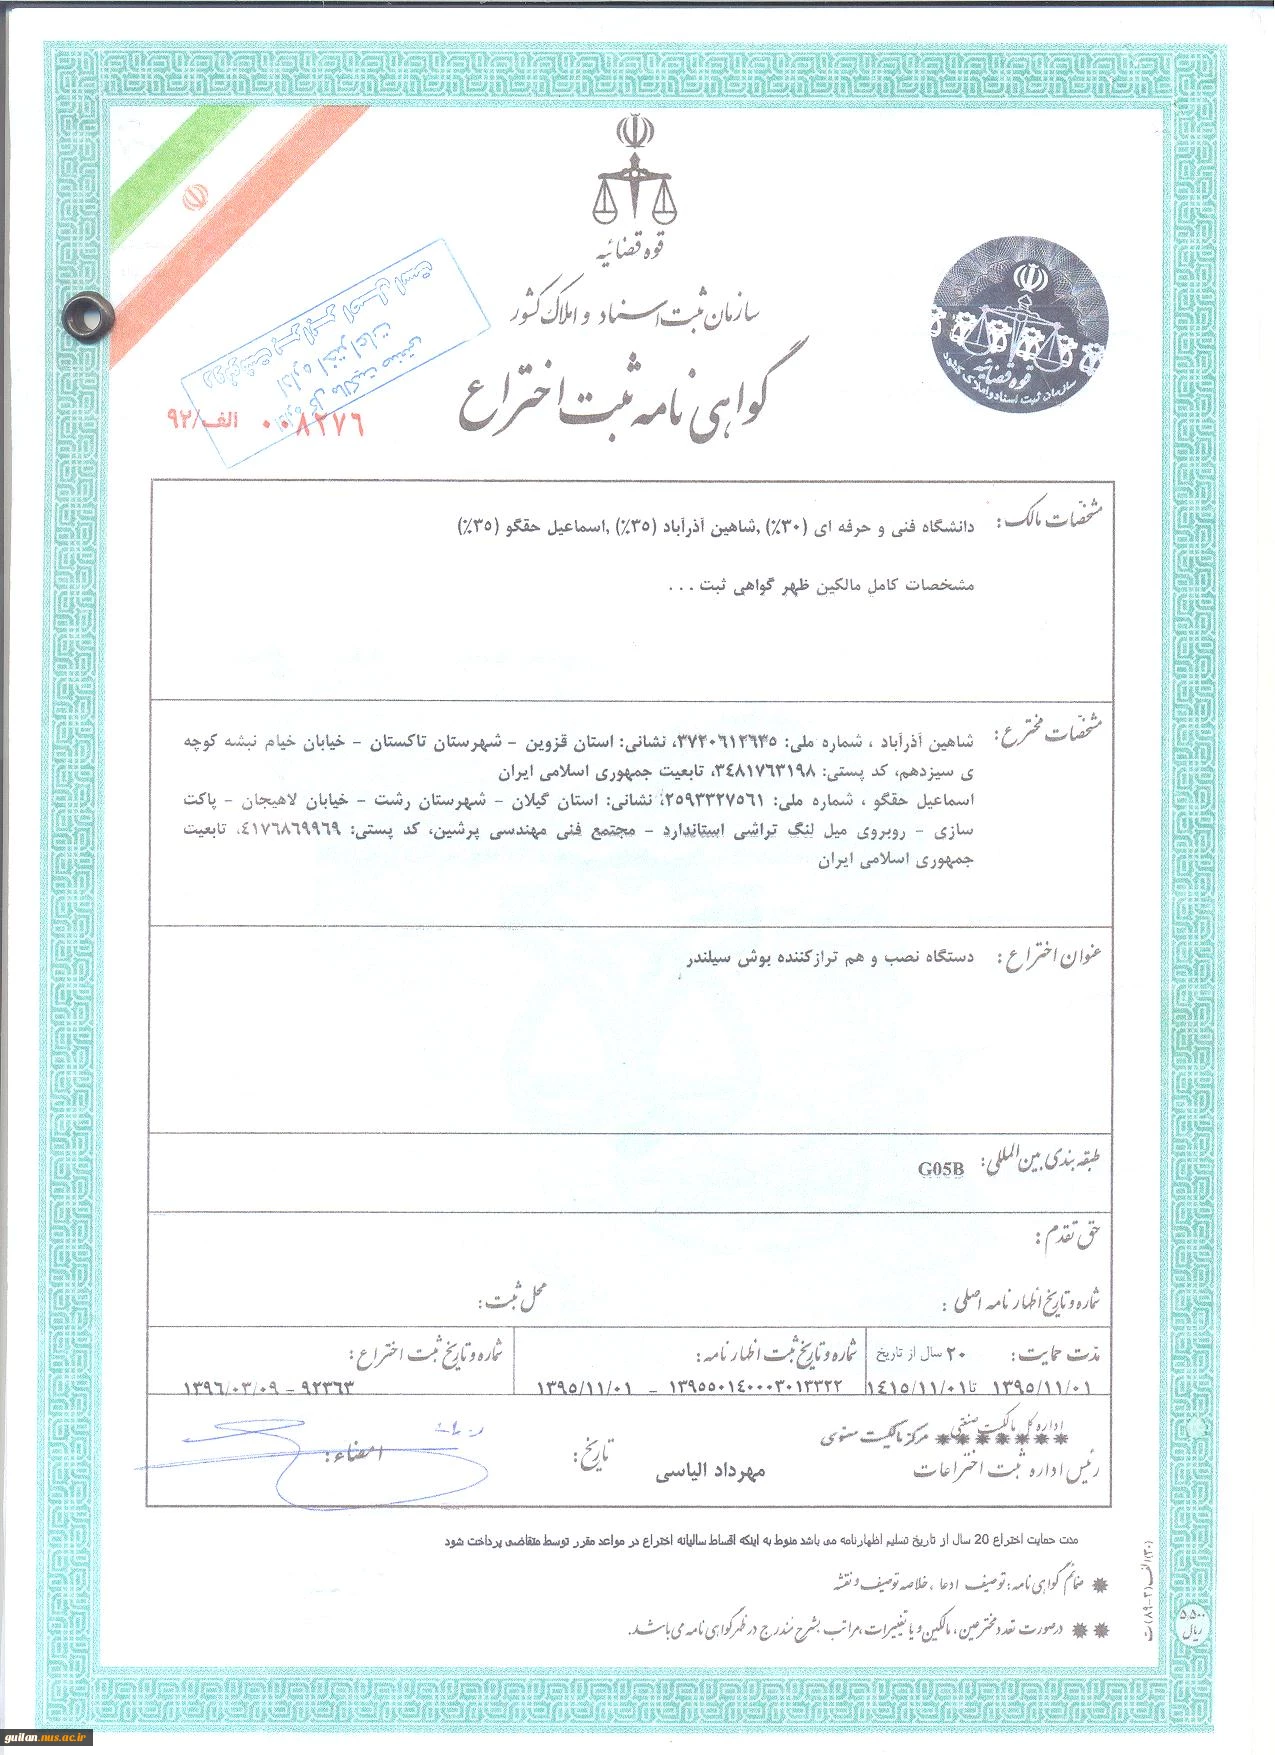 قوه قضائیه
سازمان ثبت اسناد و املاک کشور
گواهی نامه ثبت اختراع
قوه قضائیه
سازمان ثبت اسناد و املاک کشور
اداره کل مالکیت صنعتی
اداره اختراعات
الف/۹۲ ۰۰۸۲۷۶
مشخصات مالک: دانشگاه فنی و حرفه ای (۳۰٪) ,شاهین آذرآباد (۳۵٪) ,اسماعیل حقگو (۳۵٪)
مشخصات کامل مالکین ظهر گواهی ثبت . . .
مشخصات مخترع: شاهین آذرآباد ، شماره ملی: ۳۷۲۰۶۱۲۶۳۵، نشانی: استان قزوین - شهرستان تاکستان - خیابان خیام نبشه کوچه
ی سیزدهم، کد پستی: ۳۴۸۱۷۶۳۱۹۸، تابعیت جمهوری اسلامی ایران
اسماعیل حقگو ، شماره ملی: ۲۵۹۳۳۲۷۵۶۱، نشانی: استان گیلان - شهرستان رشت - خیابان لاهیجان - پاکت
سازی - روبروی میل لنگ تراشی استاندارد - مجتمع فنی مهندسی پرشین، کد پستی: ۴۱۷۶۸۶۹۹۶۹، تابعیت
جمهوری اسلامی ایران
عنوان اختراع: دستگاه نصب و هم ترازکننده بوش سیلندر
طبقه بندی بین المللی: G05B
حق تقدم:
شماره و تاریخ اظهارنامه اصلی: محل ثبت:
مدت حمایت: ۲۰ سال از تاریخ شماره و تاریخ ثبت اظهارنامه: شماره و تاریخ ثبت اختراع:
۱۳۹۵/۱۱/۰۱ تا ۱۴۱۵/۱۱/۰۱ ۱۳۹۵۵۰۱۴۰۰۰۳۰۱۳۳۲۲ - ۱۳۹۵/۱۱/۰۱ ۹۲۳۶۳ - ۱۳۹۶/۰۳/۰۹
اداره کل مالکیت صنعتی
******* مرکز مالکیت معنوی
رئیس اداره ثبت اختراعات مهرداد الیاسی تاریخ: امضاء:
مدت حمایت اختراع 20 سال از تاریخ تسلیم اظهارنامه می باشد منوط به اینکه اقساط سالیانه اختراع در مواعد مقرر توسط متقاضی پرداخت شود
* ضمائم گواهی نامه: توصیف ادعا ، خلاصه توصیف و نقشه
** درصورت تعدد مخترعین، مالکین و یا تغییرات ،مراتب بشرح مندرج در ظهر گواهی نامه می باشد.
۵٫۵۰۰ ریال
guilan.nus.ac.ir